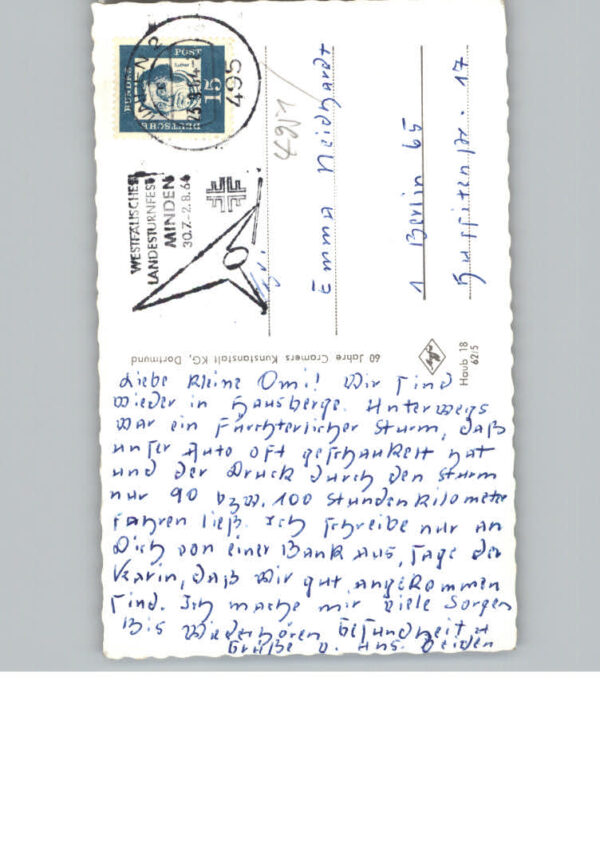 Liebe kleine Omi! Wir sind
wieder in Hausberge. Unterwegs
war ein fürchterlicher Sturm, daß
unser Auto oft geschaukelt hat
und der Druck durch den Sturm
nur 90 bzw. 100 Stundenkilometer
fahren ließ. Ich schreibe nur an
Dich von einer Bank aus, sage der
Karin, daß wir gut angekommen
sind. Ich mache mir viele Sorgen
Bis Wiederhören Gesundheit u
Grüße v. uns Beiden
60 Jahre Cramers Kunstanstalt KG, Dortmund
Haub 18
62/5
Emma Neidhardt
1 Berlin 65
Hussitenstr. 17
4951
DEUTSCHE
BUNDES
POST
15
495
WESTFÄLISCHES
LANDESTURNFEST
MINDEN
30.7.-2.8.64